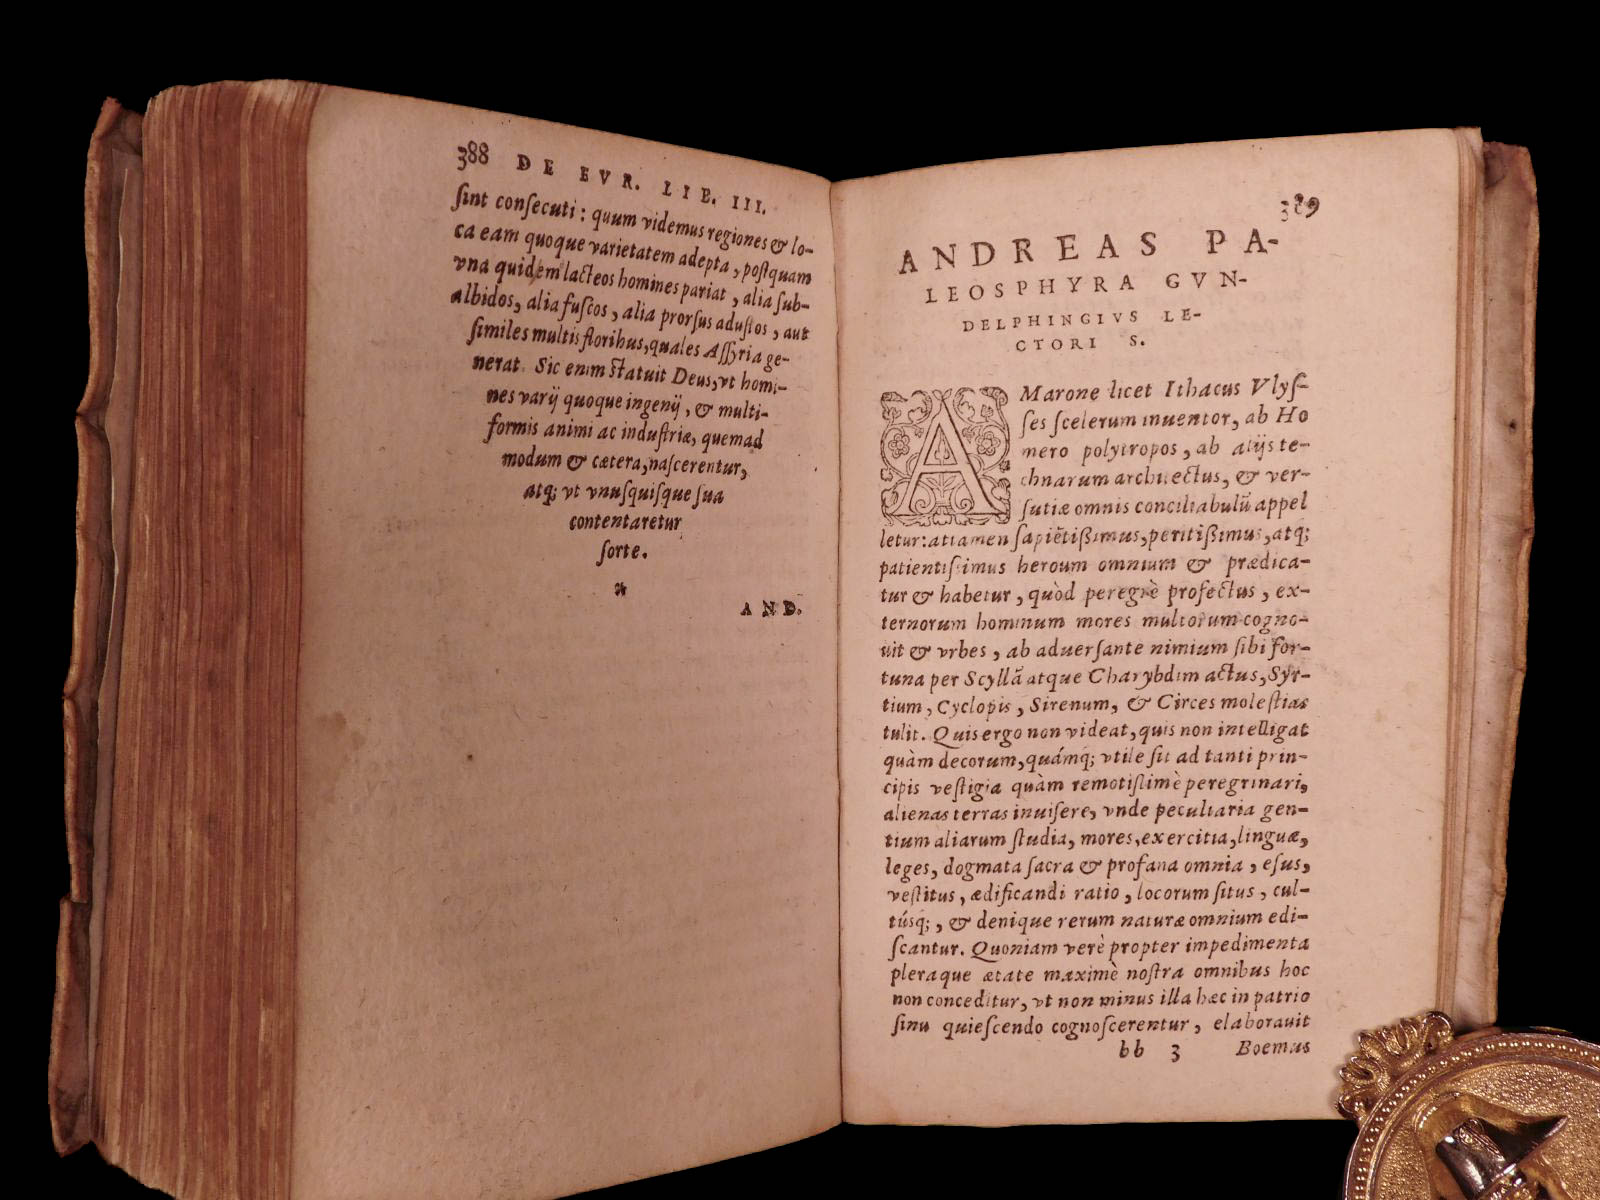 388 DE EVR. LIB. III.
ſint conſecuti: quum videmus regiones & lo-
ca eam quoque varietatem adepta, poſtquam
vna quidem lacteos homines pariat, alia ſub-
albidos, alia fuſcos, alia prorſus aduſtos, aut
ſimiles multis floribus, quales Aſſyria ge-
nerat. Sic enim ſtatuit Deus, vt homi-
nes varij quoque ingenij, & multi-
formis animi ac induſtriæ, quemad
modum & cætera, naſcerentur,
atq; vt vnuſquiſque ſua
contentaretur
ſorte.
AND.
389
ANDREAS PA-
LEOSPHYRA GVN-
DELPHINGIVS LE-
CTORI S.
A Marone licet Ithacus Vlyſ-
ſes ſcelerum inuentor, ab Ho
mero polytropos, ab alijs te-
chnarum architectus, & ver-
ſutiæ omnis conciliabulũ appel
letur: attamen ſapiẽtiſſimus, peritiſſimus, atq;
patientiſsimus heroum omnium & prædica-
tur & habetur, quòd peregrè profectus, ex-
ternorum hominum mores multorum cogno-
uit & vrbes, ab aduerſante nimium ſibi for-
tuna per Scyllã atque Charybdim actus, Syr-
tium, Cyclopis, Sirenum, & Circes moleſtias
tulit. Quis ergo non videat, quis non intelligat
quàm decorum, quámq; vtile ſit ad tanti prin-
cipis veſtigia quàm remotiſsimè peregrinari,
alienas terras inuiſere, vnde peculiaria gen-
tium aliarum ſtudia, mores, exercitia, linguæ,
leges, dogmata ſacra & profana omnia, eſus,
veſtitus, ædificandi ratio, locorum ſitus, cul-
túsq;, & denique rerum naturæ omnium edi-
ſcantur. Quoniam verè propter impedimenta
pleraque ætate maximè noſtra omnibus hoc
non conceditur, vt non minus illa hæc in patrio
ſinu quieſcendo cognoſcerentur, elaborauit
bb 3 Boemus